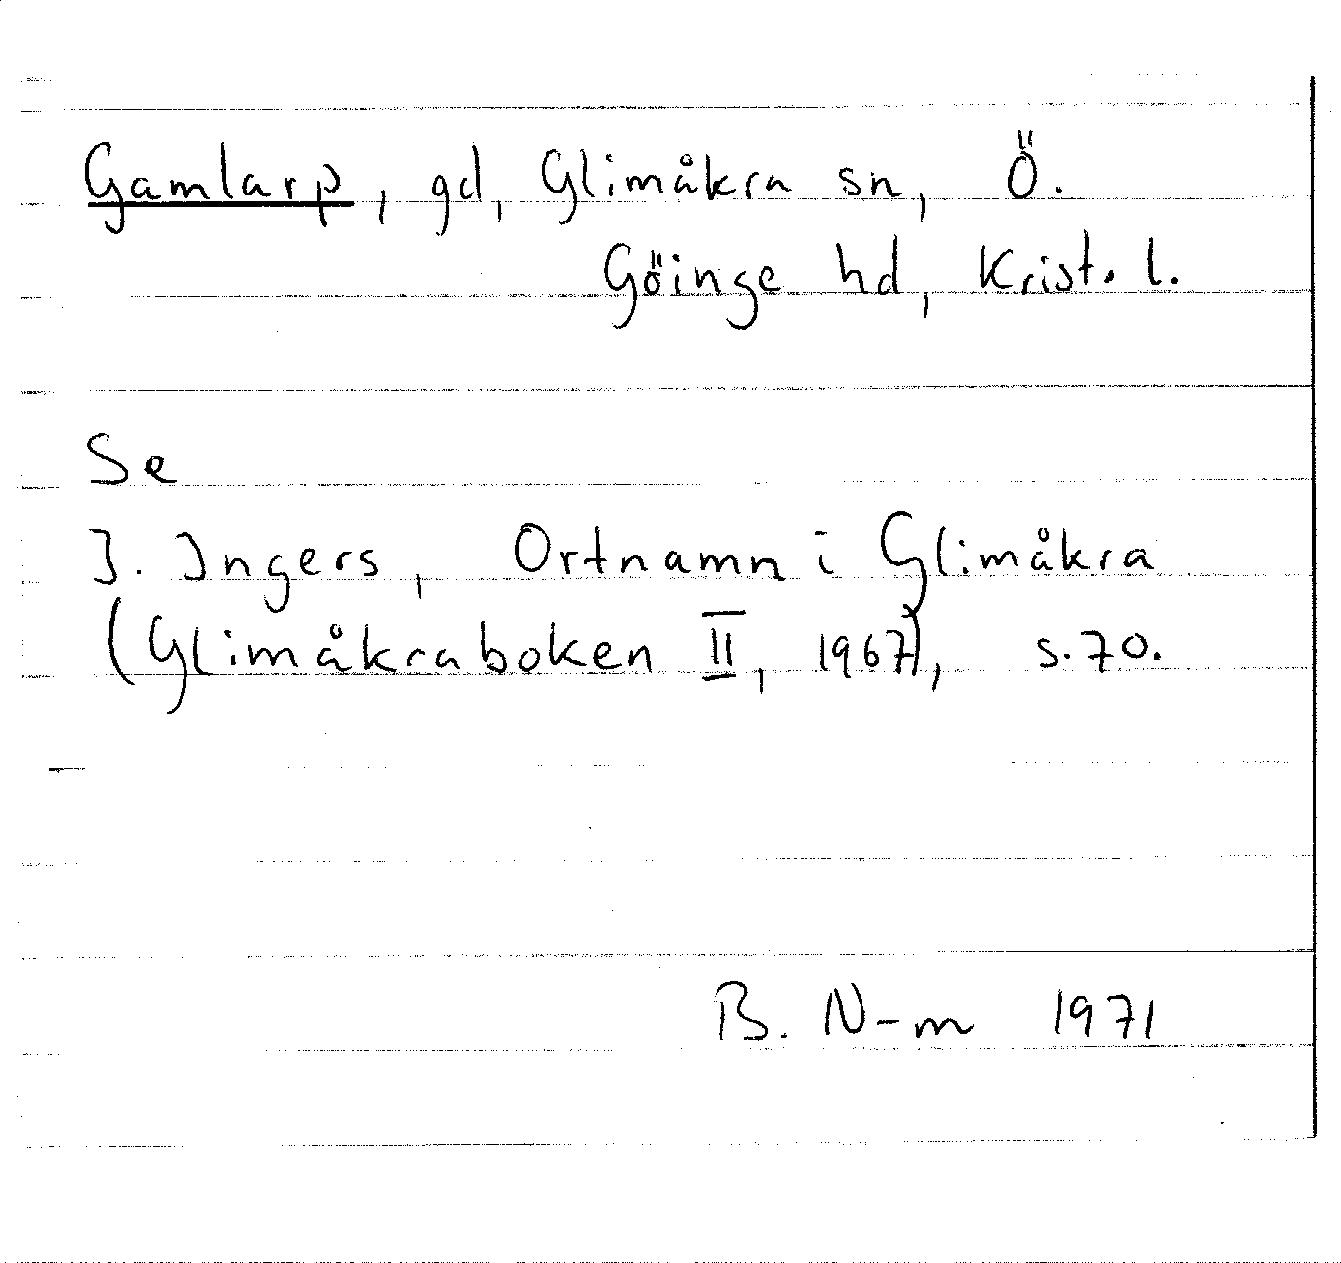 Gamlarp, gd, Glimåkra sn, Ö.
Göinge hd, Krist. l.
Se
I. Ingers, Ortnamn i Glimåkra
(Glimåkraboken II, 1967), s. 70.
B. N-m 1971